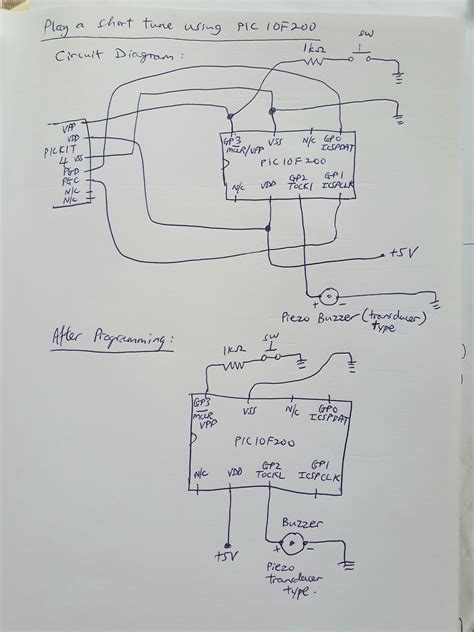 Play a short tune using PIC 10F200
Circuit Diagram:
1kΩ
SW
VPP
VDD
PICKIT
4 VSS
PGD
PGC
N/C
N/C
GP3 VSS N/C GP0
MCLR/VPP ICSPDAT
PIC10F200
N/C VDD GP2 GP1
T0CKI ICSPCLK
+5V
+ -
Piezo Buzzer (transducer)
type
After Programming:
1kΩ
SW
GP3 VSS N/C GP0
MCLR ICSPDAT
VPP
PIC10F200
N/C VDD GP2 GP1
T0CKL ICSPCLK
+5V
Buzzer
+ -
Piezo
transducer
type.